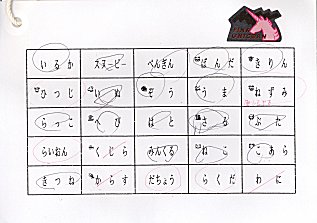 いるか スヌーピー ぺんぎん ぱんだ きりん
ひつじ いぬ ぞう うま ねずみ
らっこ へび はと さる ぶた
らいおん くじら みんくる ねこ こあら
きつね からす だちょう らくだ わに